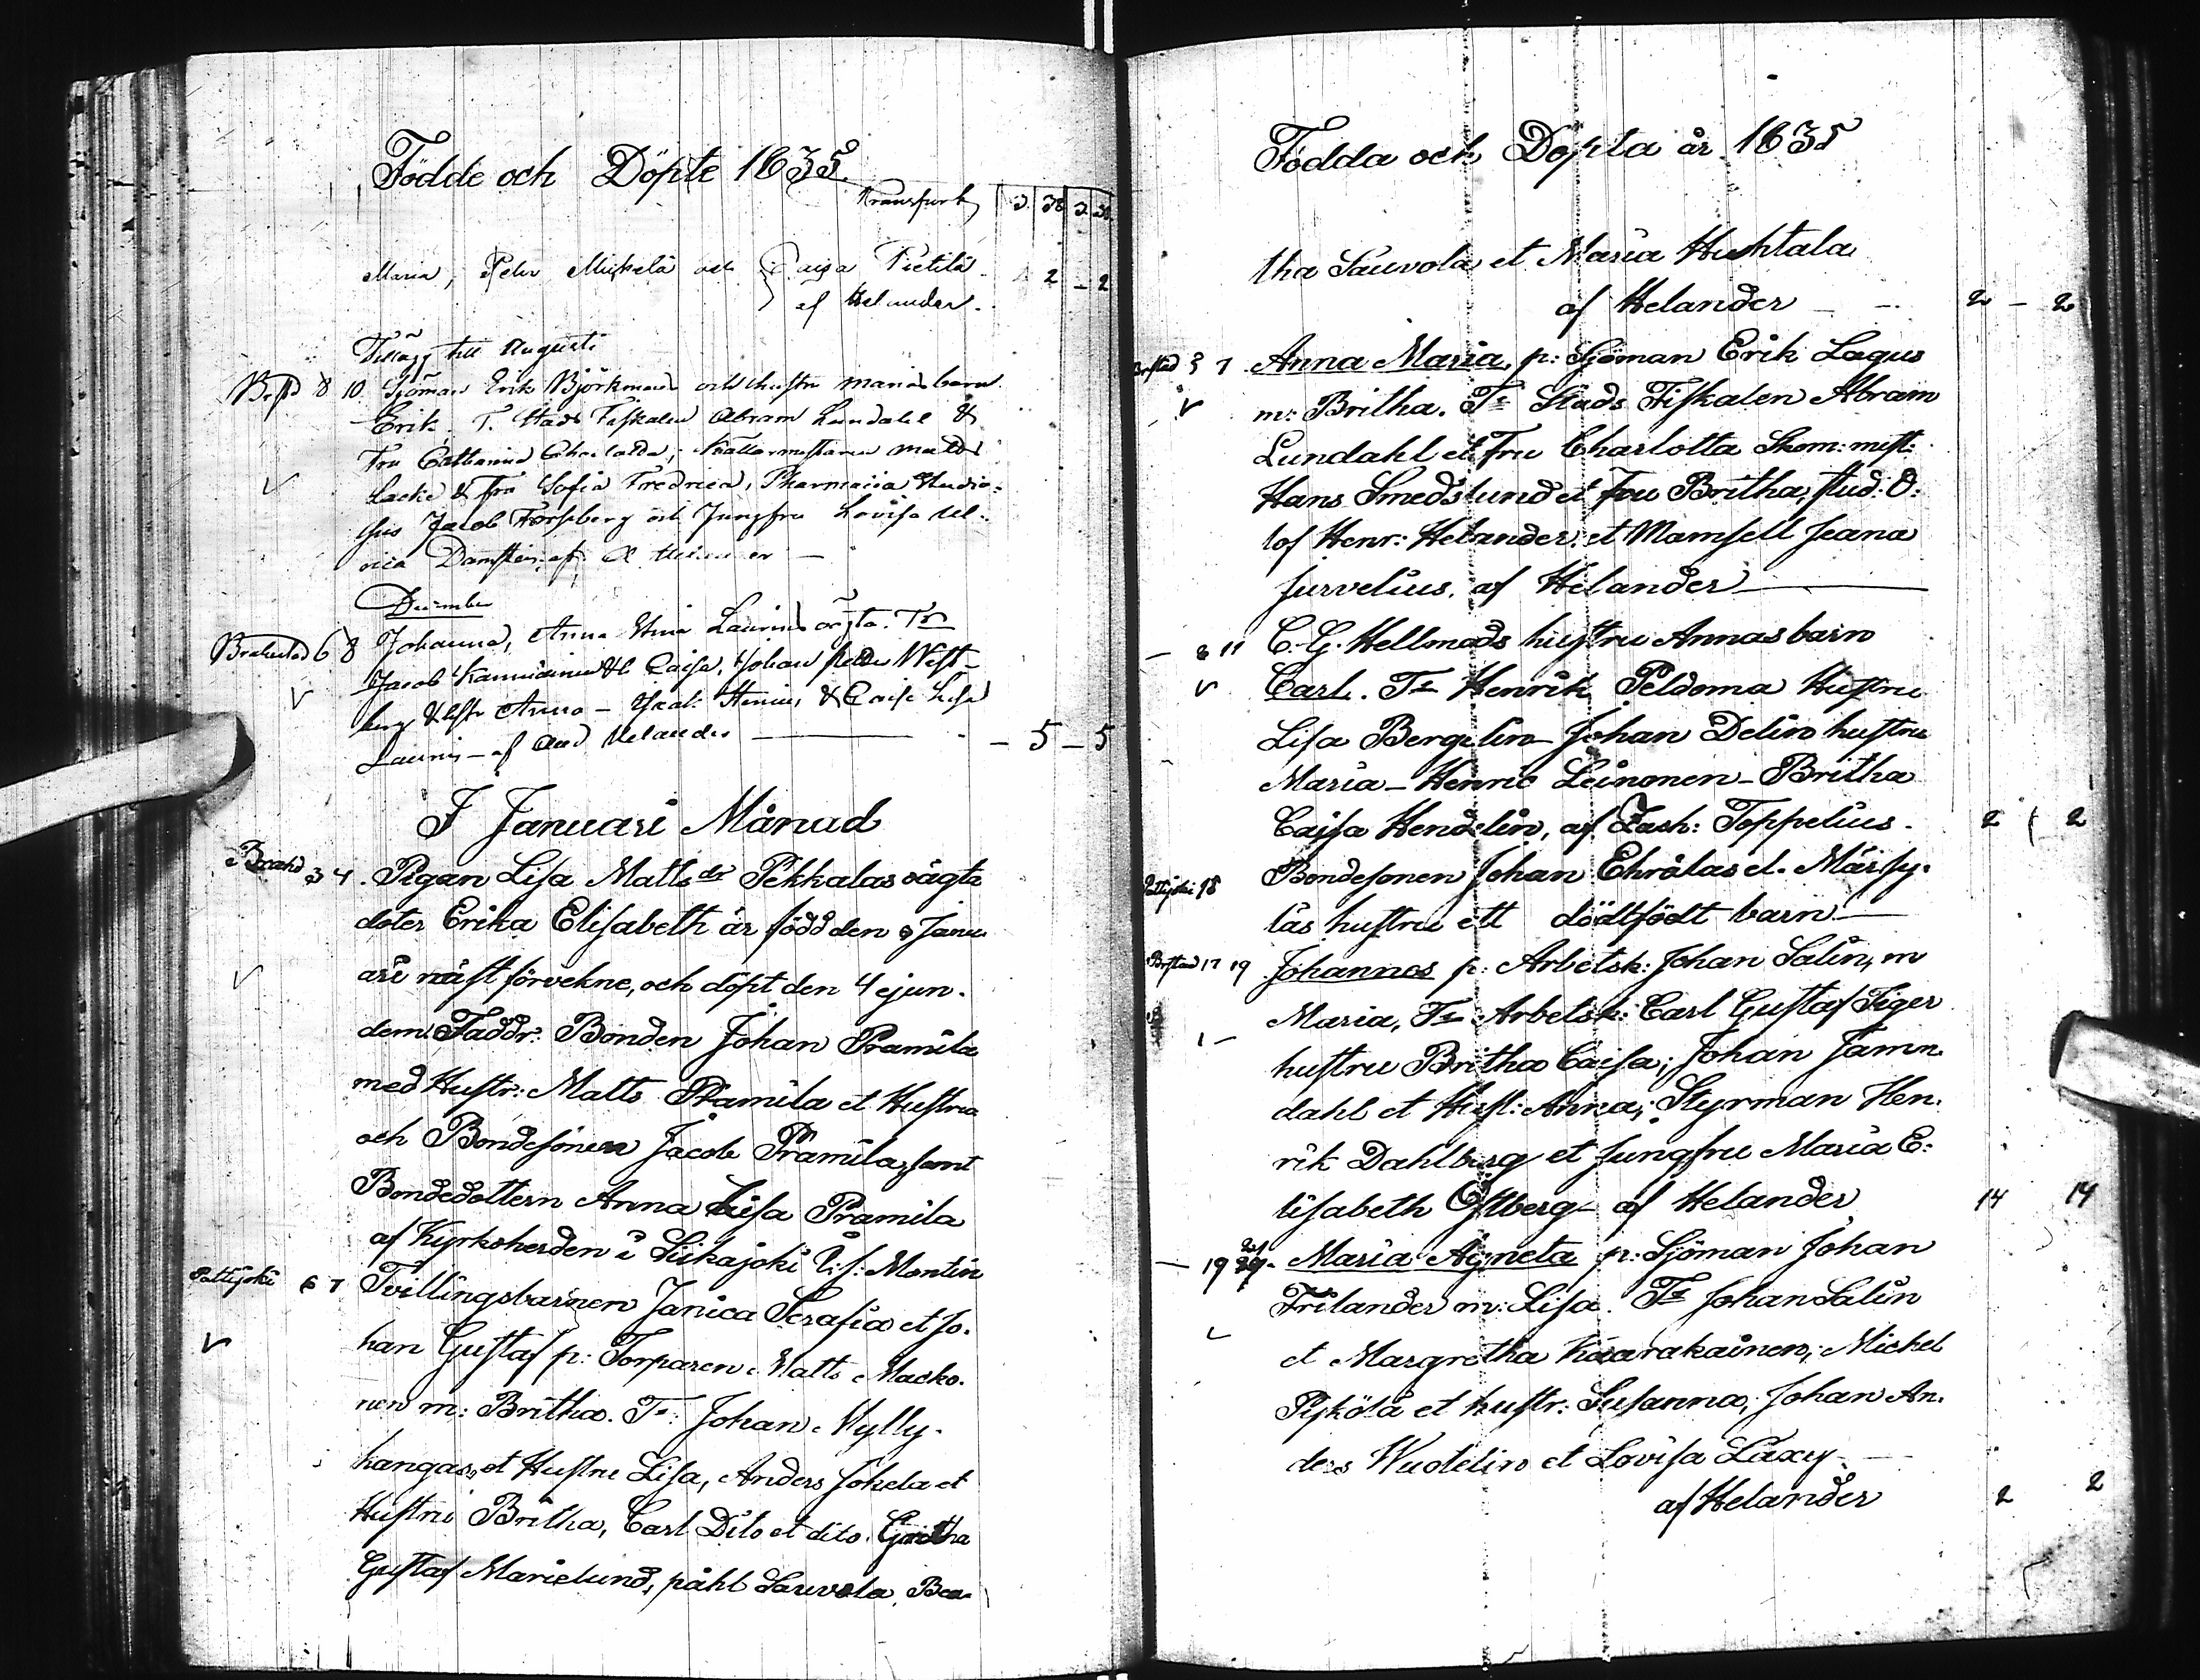 Födde och Döpte 1835
Transport 3 38 3 38
Maria, Pehr Mickelä och Caisa Pietilä
af Helander. 2 - 2
Tillägg till Augusti
Br.std 8 10 Sjöman Erik Björkmans och hustru Marias barn
Erik. T. Stads Fiskalen Abram Lundahl &
Fru Catharina Charlotta; Källarmästaren
Lacke & Fru Sofia Fredrica, Pharmacia Studio-
sus Jacob Forsberg och Jungfru Lovisa Ul-
rica Damsten, af A Helander
December
Brahestad 6 8 Johanna, Anna Stina Laurins oägta. Trs
Jacob Kanniainen & h Caisa, Johan Peter West-
berg & hstr Anna - Isak Henius & Caisa Lisa
Laurin - af And Helander - 5 - 5
I Januari Månad
Brahd 3 4. Pigan Lisa Mattsdr Pekkalas oägta
doter Erika Elisabeth är född den 3 Janu
ari näst förvekne, och döpt den 4 ejun-
dem. Faddr: Bonden Johan Pramila
med Hustr: Matts Pramila et Hustru
och Bondesonen Jacob Pramila, samt
Bondedottern Anna Caisa Pramila
af Kyrkoherden i Siikajoki U: f: Montin
Pattijoki 6 7 Tvillingsbarnen Janica Serafia et Jo-
han Gustaf p: Torparen Matts Macko-
nen m: Britha. Trs: Johan Mylly-
kangas, et Hustru Lisa, Anders Jokela et
Hustru Britha, Carl Dito et dito Gretha
Gustaf Marielund, påhl Sauvola, Brea-
Födda och Döpta år 1835
tha Sauvola et Maria Huhtala
af Helander - 2 - 2
Brstad 5 7 Anna Maria, p: Sjöman Erik Lagus
m: Britha. Trs Stads Fiskalen Abram
Lundahl et Fru Charlotta Skom: mäst:
Hans Smedslund et Fru Britha, stud: O:
lof Henr: Helander, et Mamsell Jeana
Jurvelius, af Helander
- 8 11 C. G. Hellmads hustru Annas barn
Carl. Trs Henrik Peldoma Hustru
Lisa Bergelin - Johan Delin hustru
Maria - Henric Leinonen - Britha
Caisa Hendelin, af Zach: Toppelius. 2 2
Pattijoki 18 Bondesonen Johan Ehrålas el. Märsy-
läs hustru ett dödtfödt barn
Brstad 17 19 Johannes p: Arbetsk: Johan Salin, m
Maria, Trs Arbetsk: Carl Gustaf Tiger
hustru Britha Caisa; Johan Jamn-
dahl et Hust: Anna; Styrman Hen-
rik Dahlberg et Jungfru Maria E-
lisabeth Östberg - af Helander 14 14
- 19 21. Maria Agneta p: Sjöman Johan
Frilander m: Lisa. Trs Johan Salin
et Margretha Kaarakainen, Michel
Pyköla et hustr: Susanna, Johan An-
ders Wuotelin et Lovisa Laxy
af Helander 2 2